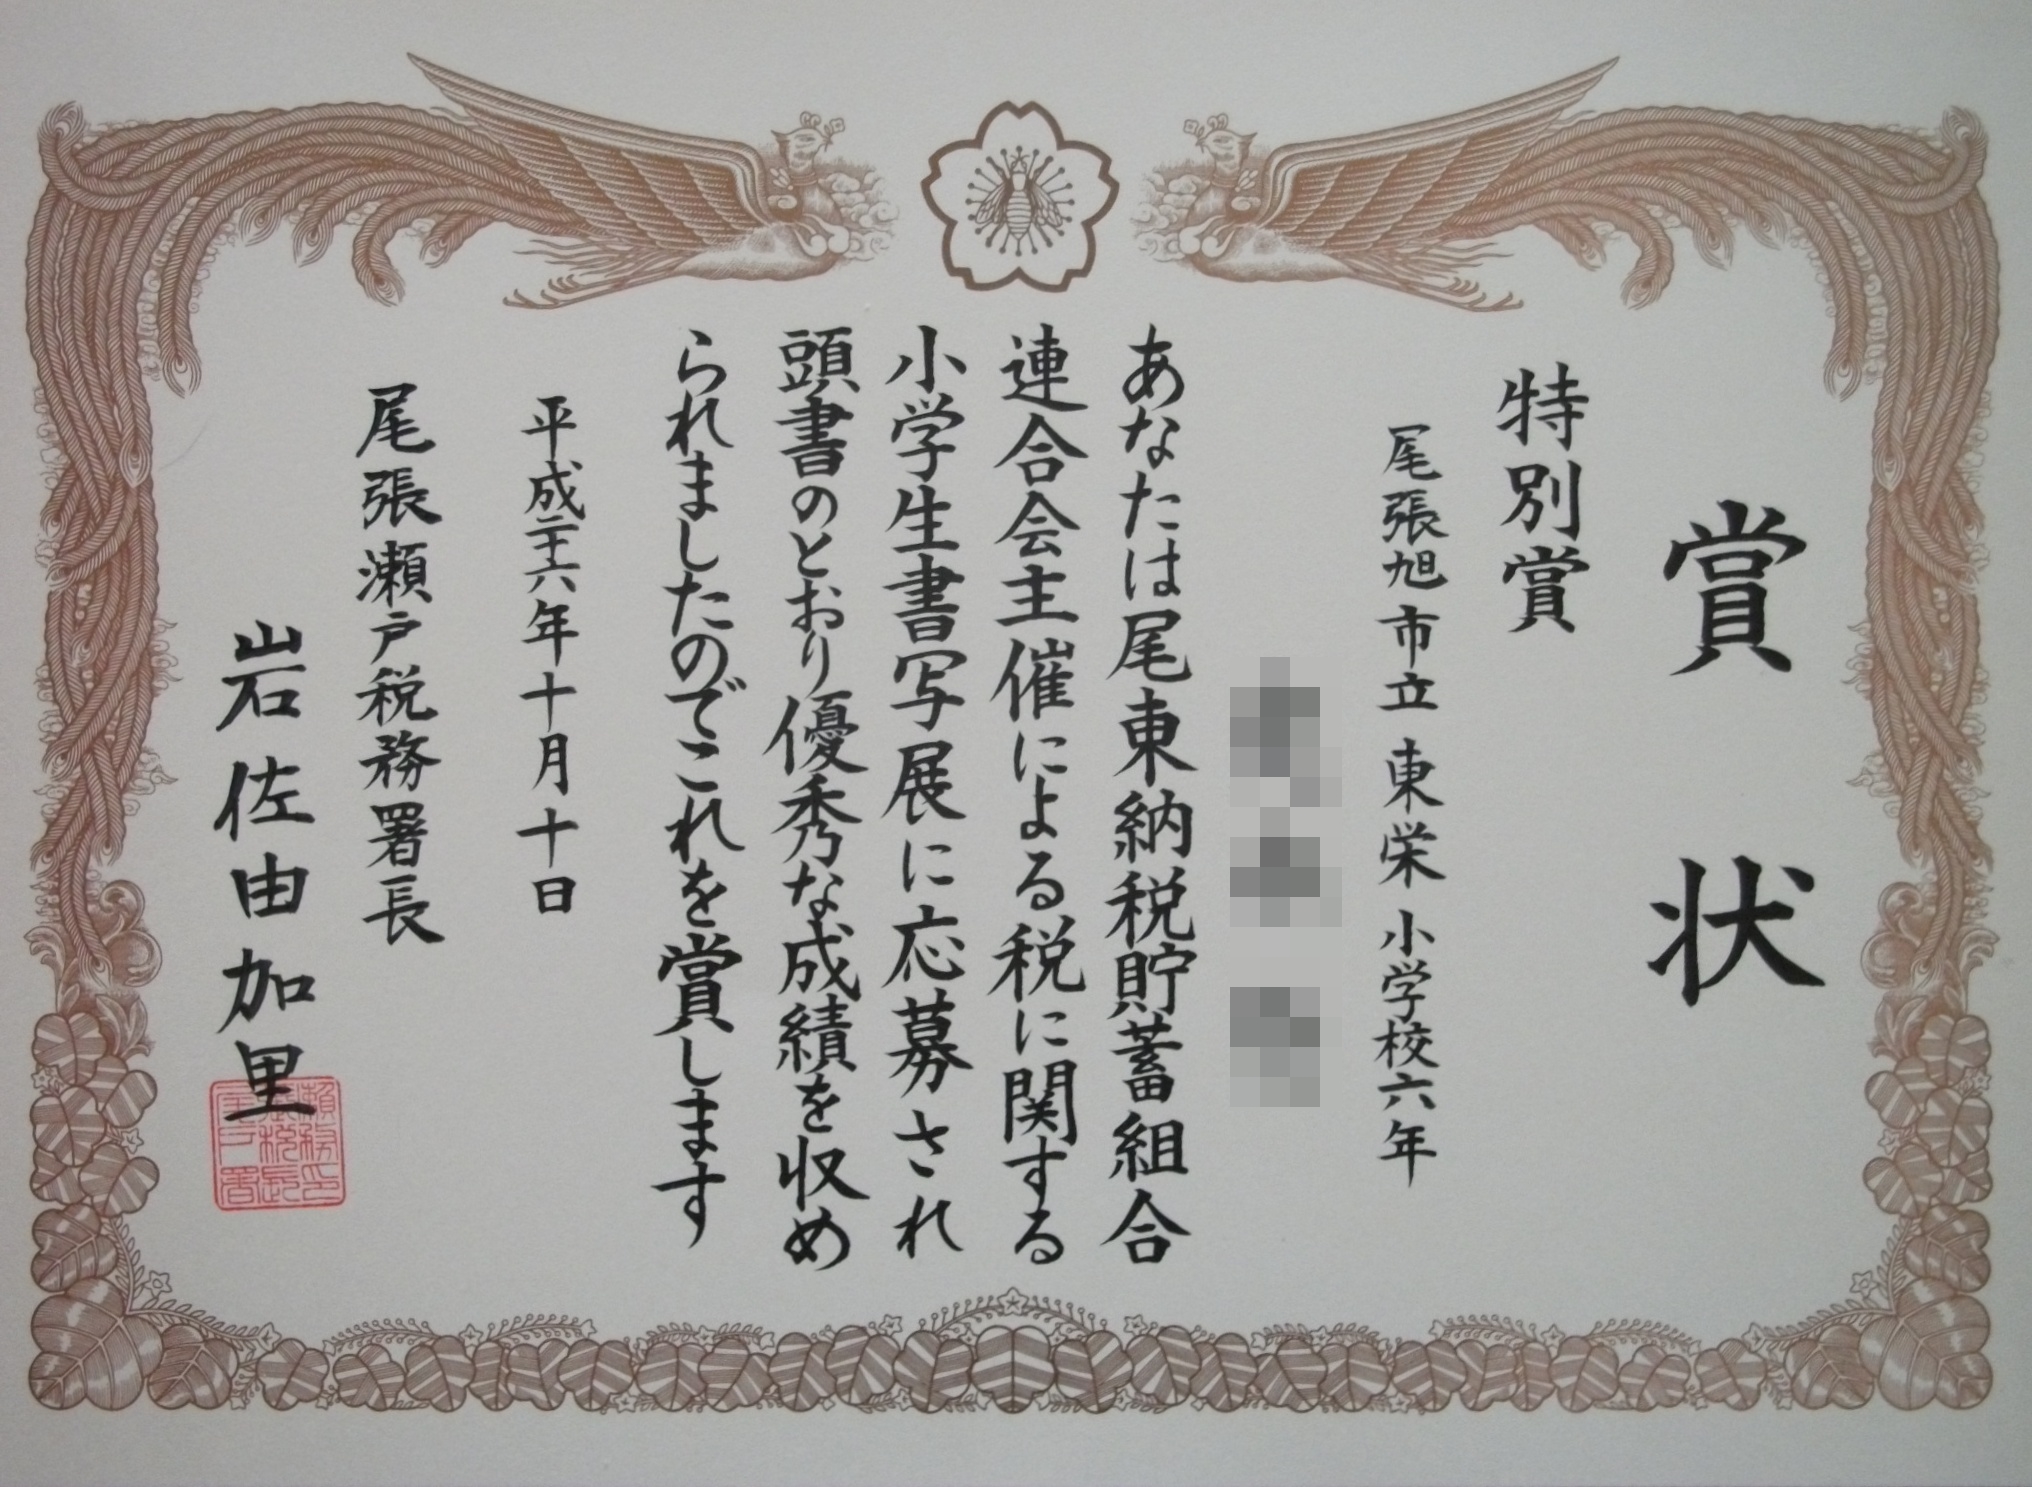 賞状
特別賞
尾張旭市立東栄小学校六年
あなたは尾東納税貯蓄組合
連合会主催による税に関する
小学生書写展に応募され
頭書のとおり優秀な成績を収め
られましたのでこれを賞します
平成二十六年十月十日
尾張瀬戸税務署長
岩佐由加里